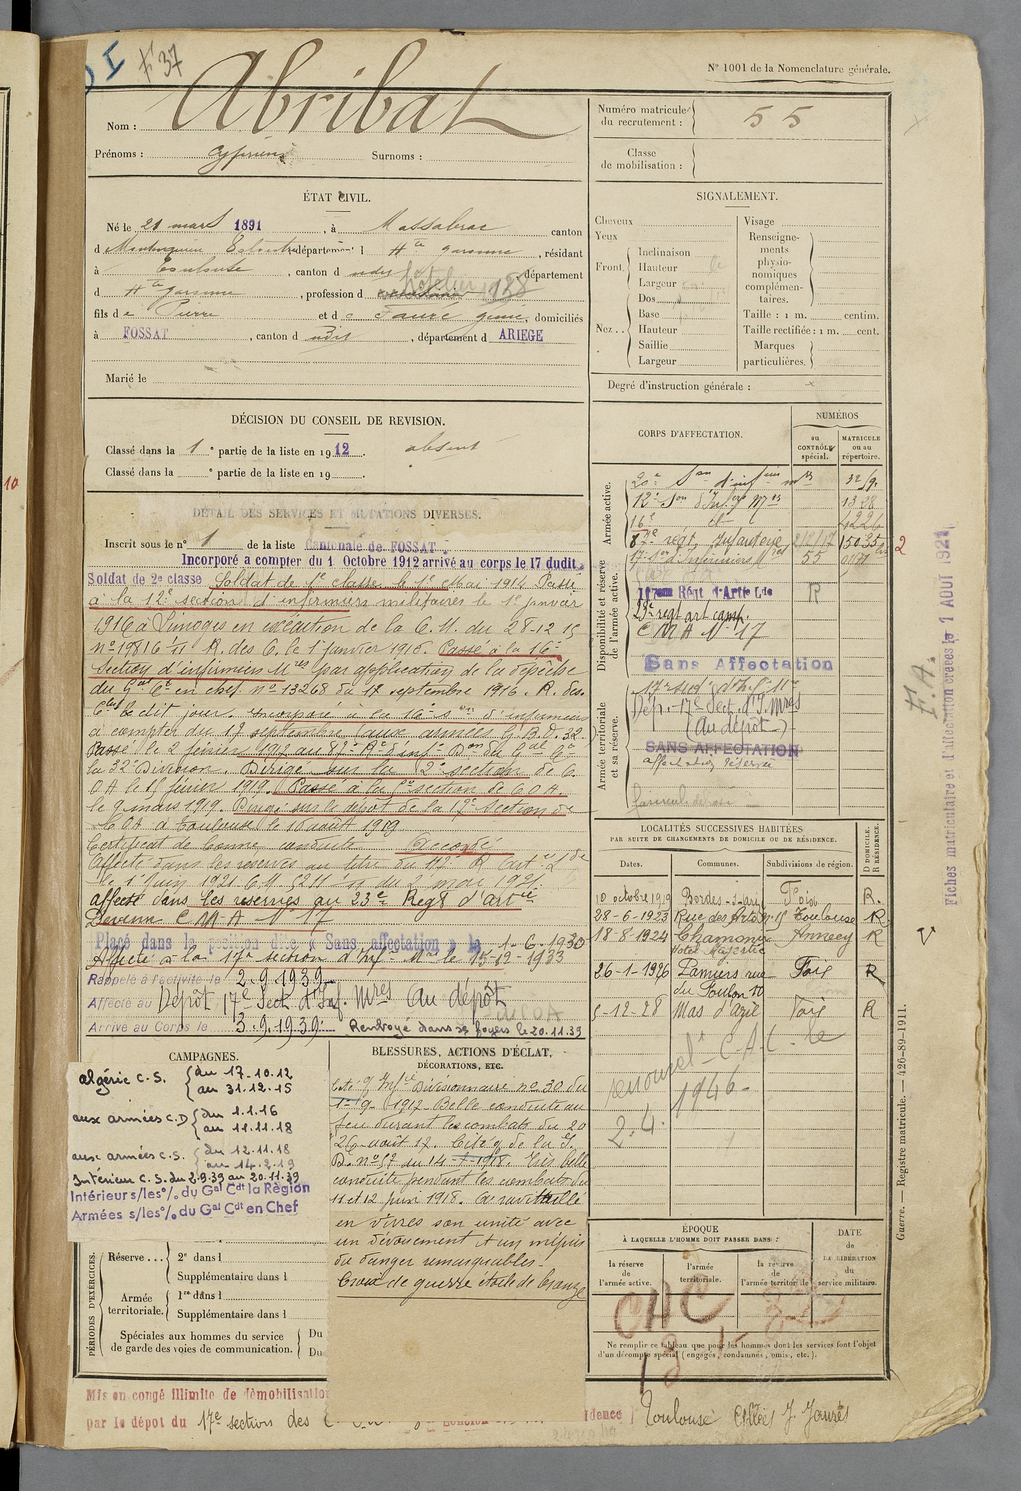 I F 37
N° 1001 de la Nomenclature générale.
Nom : Abribat
Prénoms : Cyprien Surnoms :
Numéro matricule du recrutement : 55
Classe de mobilisation :
ÉTAT CIVIL.
Né le 21 mars 1891, à Massabrac canton
d Montesquieu Volvestre, département d Hte garonne, résidant
à Toulouse, canton d udit, département
d Hte garonne, profession d hôtelier 1928
fils de Pierre et de Faure, domiciliés
à FOSSAT, canton d udit, département d ARIEGE
Marié le
SIGNALEMENT.
Cheveux
Yeux
Front. Inclinaison
Hauteur
Largeur
Dos
Nez . . Base
Hauteur
Saillie
Largeur
Visage
Renseignements physionomiques complémentaires.
Taille : 1 m. centim.
Taille rectifiée : 1 m. cent.
Marques particulières.
Degré d'instruction générale :
DÉCISION DU CONSEIL DE REVISION.
Classé dans la 1e partie de la liste en 1912. absent
Classé dans la e partie de la liste en 19
DÉTAIL DES SERVICES ET MUTATIONS DIVERSES.
Inscrit sous le n° 1 de la liste Cantonale de FOSSAT.
Incorporé a compter du 1 Octobre 1912 arrivé au corps le 17 dudit.
Soldat de 2e classe Soldat de 1e classe le 1e Mai 1914 Passé
à la 12e section d'infirmiers militaires le 1e janvier
1916 à Limoges en exécution de la C. M. du 28-12 15
n° 19816 R. des C. le 1 janvier 1916. Passé à la 16e
Section d'infirmiers Mres par application de la dépêche
du Gal Ct en chef n° 13268 du 18 septembre 1916. R. des
Ctles le dit jour. Incorporé à la 16e son d'infirmiers
à compter du 17 septembre (aux armées G. B. D. 32
Passé le 2 février 1917 au 87e Rt d'infie
la 32e Division. Dirigé sur la 2e section de C.
O A le 15 février 1919. Passé à la section de C.O.A.
le 9 mars 1919. Dirigé sur le dépôt de la 17e Section de
C O A à Toulouse le 16 août 1919
Certificat de bonne conduite Accordé
Affecté dans les réserves au titre du 117e R. Art. Lde
le 1e Juin 1921 C. M. 5211 du 2 mai 1921.
affecté dans les reserves au 23e Regt d'artie
Devenu C M A N° 17
Placé dans la position dite « Sans affectation » le 1-6.1930
Affecté à la 17e section d'Infres Mres le 15-12-1933
Rappelé à l'activité le 2.9.1939
Affecté au Dépôt 17e Sect. d'Inf. Mres (au dépôt)
Arrivé au Corps le 3.9.1939 Renvoyé dans ses foyers le 20.11.39
CORPS D'AFFECTATION.
NUMÉROS
au CONTRÔLE spécial.
MATRICULE ou au répertoire.
Armée active.
12e Son d'Infres Mres 1328
16e dt 4226
87e régt, Infanterie 15035 bis 2
17e Son d'Infirmiers Mres 55
Disponibilité et réserve de l'armée active.
117eme Régt d'Artie Lde R
23e regt art camp.
C M A N° 17
Sans Affectation
Armée territoriale et sa réserve.
17e sect d'Inf. Mres
Dép. 17e Sect. d'I. Mres
(Au dépôt)
SANS AFFECTATION
affectation réservée
LOCALITÉS SUCCESSIVES HABITÉES
PAR SUITE DE CHANGEMENTS DE DOMICILE OU DE RÉSIDENCE.
Dates. Communes. Subdivisions de région. D DOMICILE. R RÉSIDENCE.
10 octobre 1919 Bordes-s-arize Foix R.
28-6-1923 Rue des Arts n. 15 Toulouse R
18-8-1924 Chamonix Hôtel Majestic Annecy R V
26-1-1926 Pamiers rue du Foulon 10 Foix R
5-12-28 Mas d'azil Foix R
1946
2.4.
CAMPAGNES.
algérie C.S. du 17-10.12
au 31.12.15
aux armées C.D du 1.1.16
au 11.11.18
aux armées C.S. du 12.11.18
au 14.2.19
Intérieur C.S. du 2.9.39 au 20.11.39
Intérieur s/les % du Gal Cdt la Région
Armées s/les % du Gal Cdt en Chef
BLESSURES, ACTIONS D'ÉCLAT, DÉCORATIONS, ETC.
Cité O/ Infie Divisionnaire n° 30 du
1-9-1917 Belle conduite au
feu durant les combats du 20
26 août 17. Cité O/ de la I.
D. n° 57 du 14-7-1918. Très belle
conduite pendant les combats du
11 et 12 juin 1918. A ravitaillé
en vivres son unité avec
un dévouement et un mépris
du danger remarquables.
Croix de guerre étoile de bronze
PÉRIODES D'EXERCICES.
Réserve . . . 2e dans l
Supplémentaire dans l
Armée territoriale. 1re dans l
Supplémentaire dans l
Spéciales aux hommes du service de garde des voies de communication. Du
Du
ÉPOQUE
À LAQUELLE L'HOMME DOIT PASSER DANS :
la réserve de l'armée active.
l'armée territoriale.
la réserve de l'armée territoriale
DATE de LA LIBÉRATION du service militaire.
CHC
Ne remplir ce tableau que pour les hommes dont les services font l'objet
d'un décompte spécial (engagés, condamnés, omis, etc.).
Mis en congé illimité de démobilisation
par le dépôt du 17e section des
Toulouse Allées J. Jaurès
Guerre. — Registre matricule. — 426-89-1911.
F.A.
Fiches matriculaire et d'affectation créées le 1 AOUT 1921